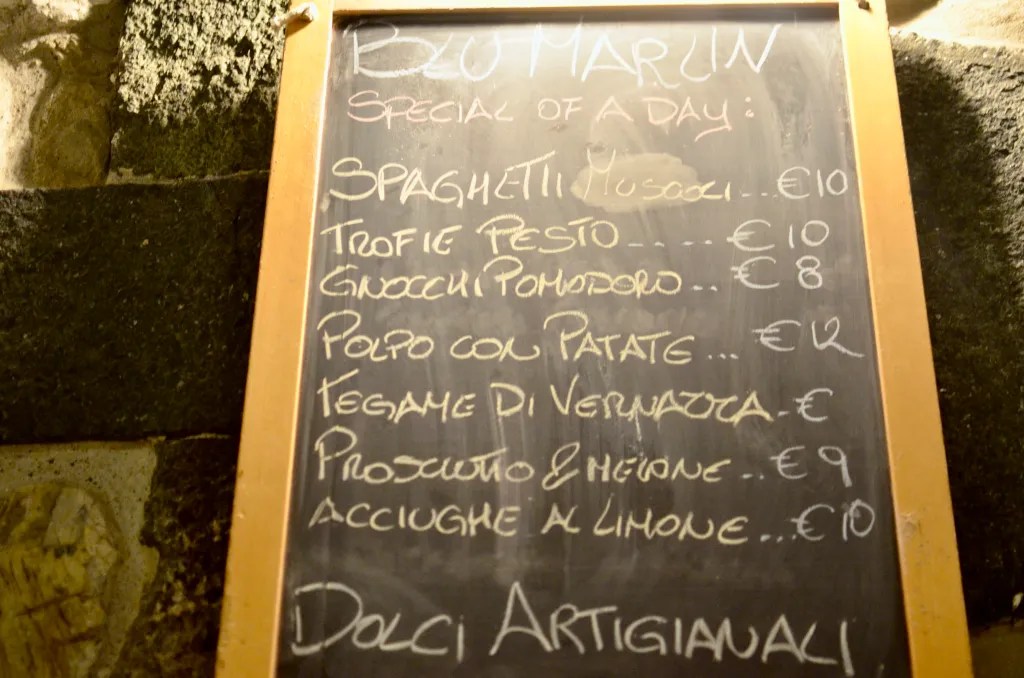 BLU MARLIN
SPECIAL OF A DAY:
SPAGHETTI MUSCOLI...€10
TROFIE PESTO----- €10
GNOCCHI POMODORO.. €8
POLPO CON PATATE... €12
TEGAME DI VERNAZZA.€
PROSCIUTTO & MELONE ..€9
ACCIUGHE AL LIMONE...€10
DOLCI ARTIGIANALI